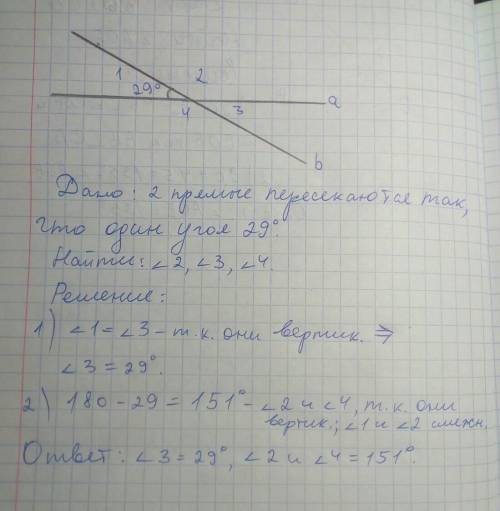 1 2
29°
4 3 a
b
Дано: 2 прямые пересекаются так,
что один угол 29°.
Найти: ∠2, ∠3, ∠4.
Решение:
1) ∠1 = ∠3 - т.к. они вертик. ⇒
∠3 = 29°.
2) 180 - 29 = 151° - ∠2 и ∠4, т.к. они
вертик.; ∠1 и ∠2 смежн.
Ответ: ∠3 = 29°, ∠2 и ∠4 = 151°.